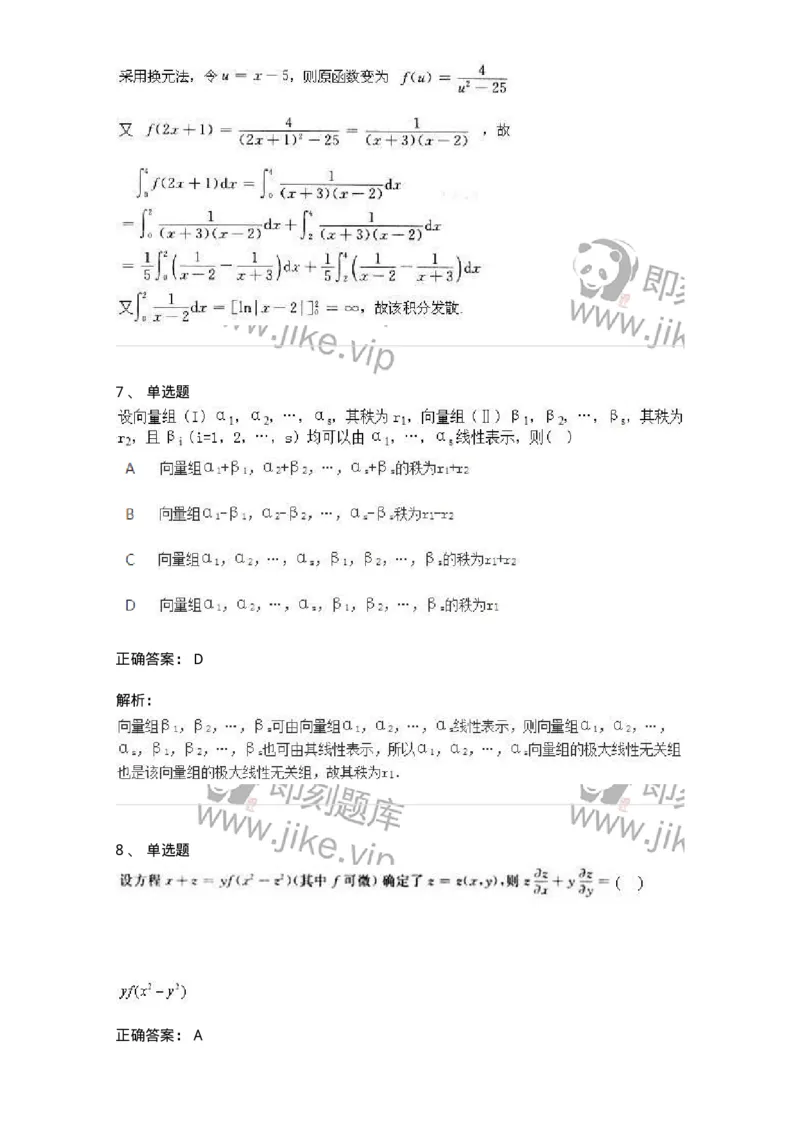 采用换元法，令 u = x − 5，则原函数变为 f(u) = 4/(u² − 25)
又 f(2x + 1) = 4/((2x + 1)² − 25) = 1/((x + 3)(x − 2)) ，故
∫₀⁴ f(2x + 1)dx = ∫₀⁴ 1/((x + 3)(x − 2)) dx
= ∫₀² 1/((x + 3)(x − 2)) dx + ∫₂⁴ 1/((x + 3)(x − 2)) dx
= 1/5 ∫₀² (1/(x − 2) − 1/(x + 3)) dx + 1/5 ∫₂⁴ (1/(x − 2) − 1/(x + 3)) dx
又∫₀² 1/(x − 2) dx = [ln|x − 2|]₀² = ∞，故该积分发散.
即刻
www.jik
www.jike.vip
7 、 单选题
设向量组（I）α₁，α₂，…，αₛ，其秩为 r₁，向量组（Ⅱ）β₁，β₂，…，βₛ，其秩为
r₂，且 βᵢ（i=1，2，…，s）均可以由 α₁，…，αₛ线性表示，则( )
A 向量组α₁+β₁，α₂+β₂，…，αₛ+βₛ的秩为r₁+r₂
B 向量组α₁-β₁，α₂-β₂，…，αₛ-βₛ秩为r₁-r₂
C 向量组α₁，α₂，…，αₛ，β₁，β₂，…，βₛ的秩为r₁+r₂
D 向量组α₁，α₂，…，αₛ，β₁，β₂，…，βₛ的秩为r₁
正确答案： D
解析：
向量组β₁，β₂，…，βₛ可由向量组α₁，α₂，…，αₛ线性表示，则向量组α₁，α₂，…，
αₛ，β₁，β₂，…，βₛ也可由其线性表示，所以α₁，α₂，…，αₛ向量组的极大线性无关组
也是该向量组的极大线性无关组，故其秩为r₁.
即刻题库
www.jike.vip
即刻
www.jik
8 、 单选题
设方程 x + z = yf(x² − z²)(其中 f 可微) 确定了 z = z(x,y),则 z ∂z/∂x + y ∂z/∂y = ( )
yf(x² − y²)
正确答案： A